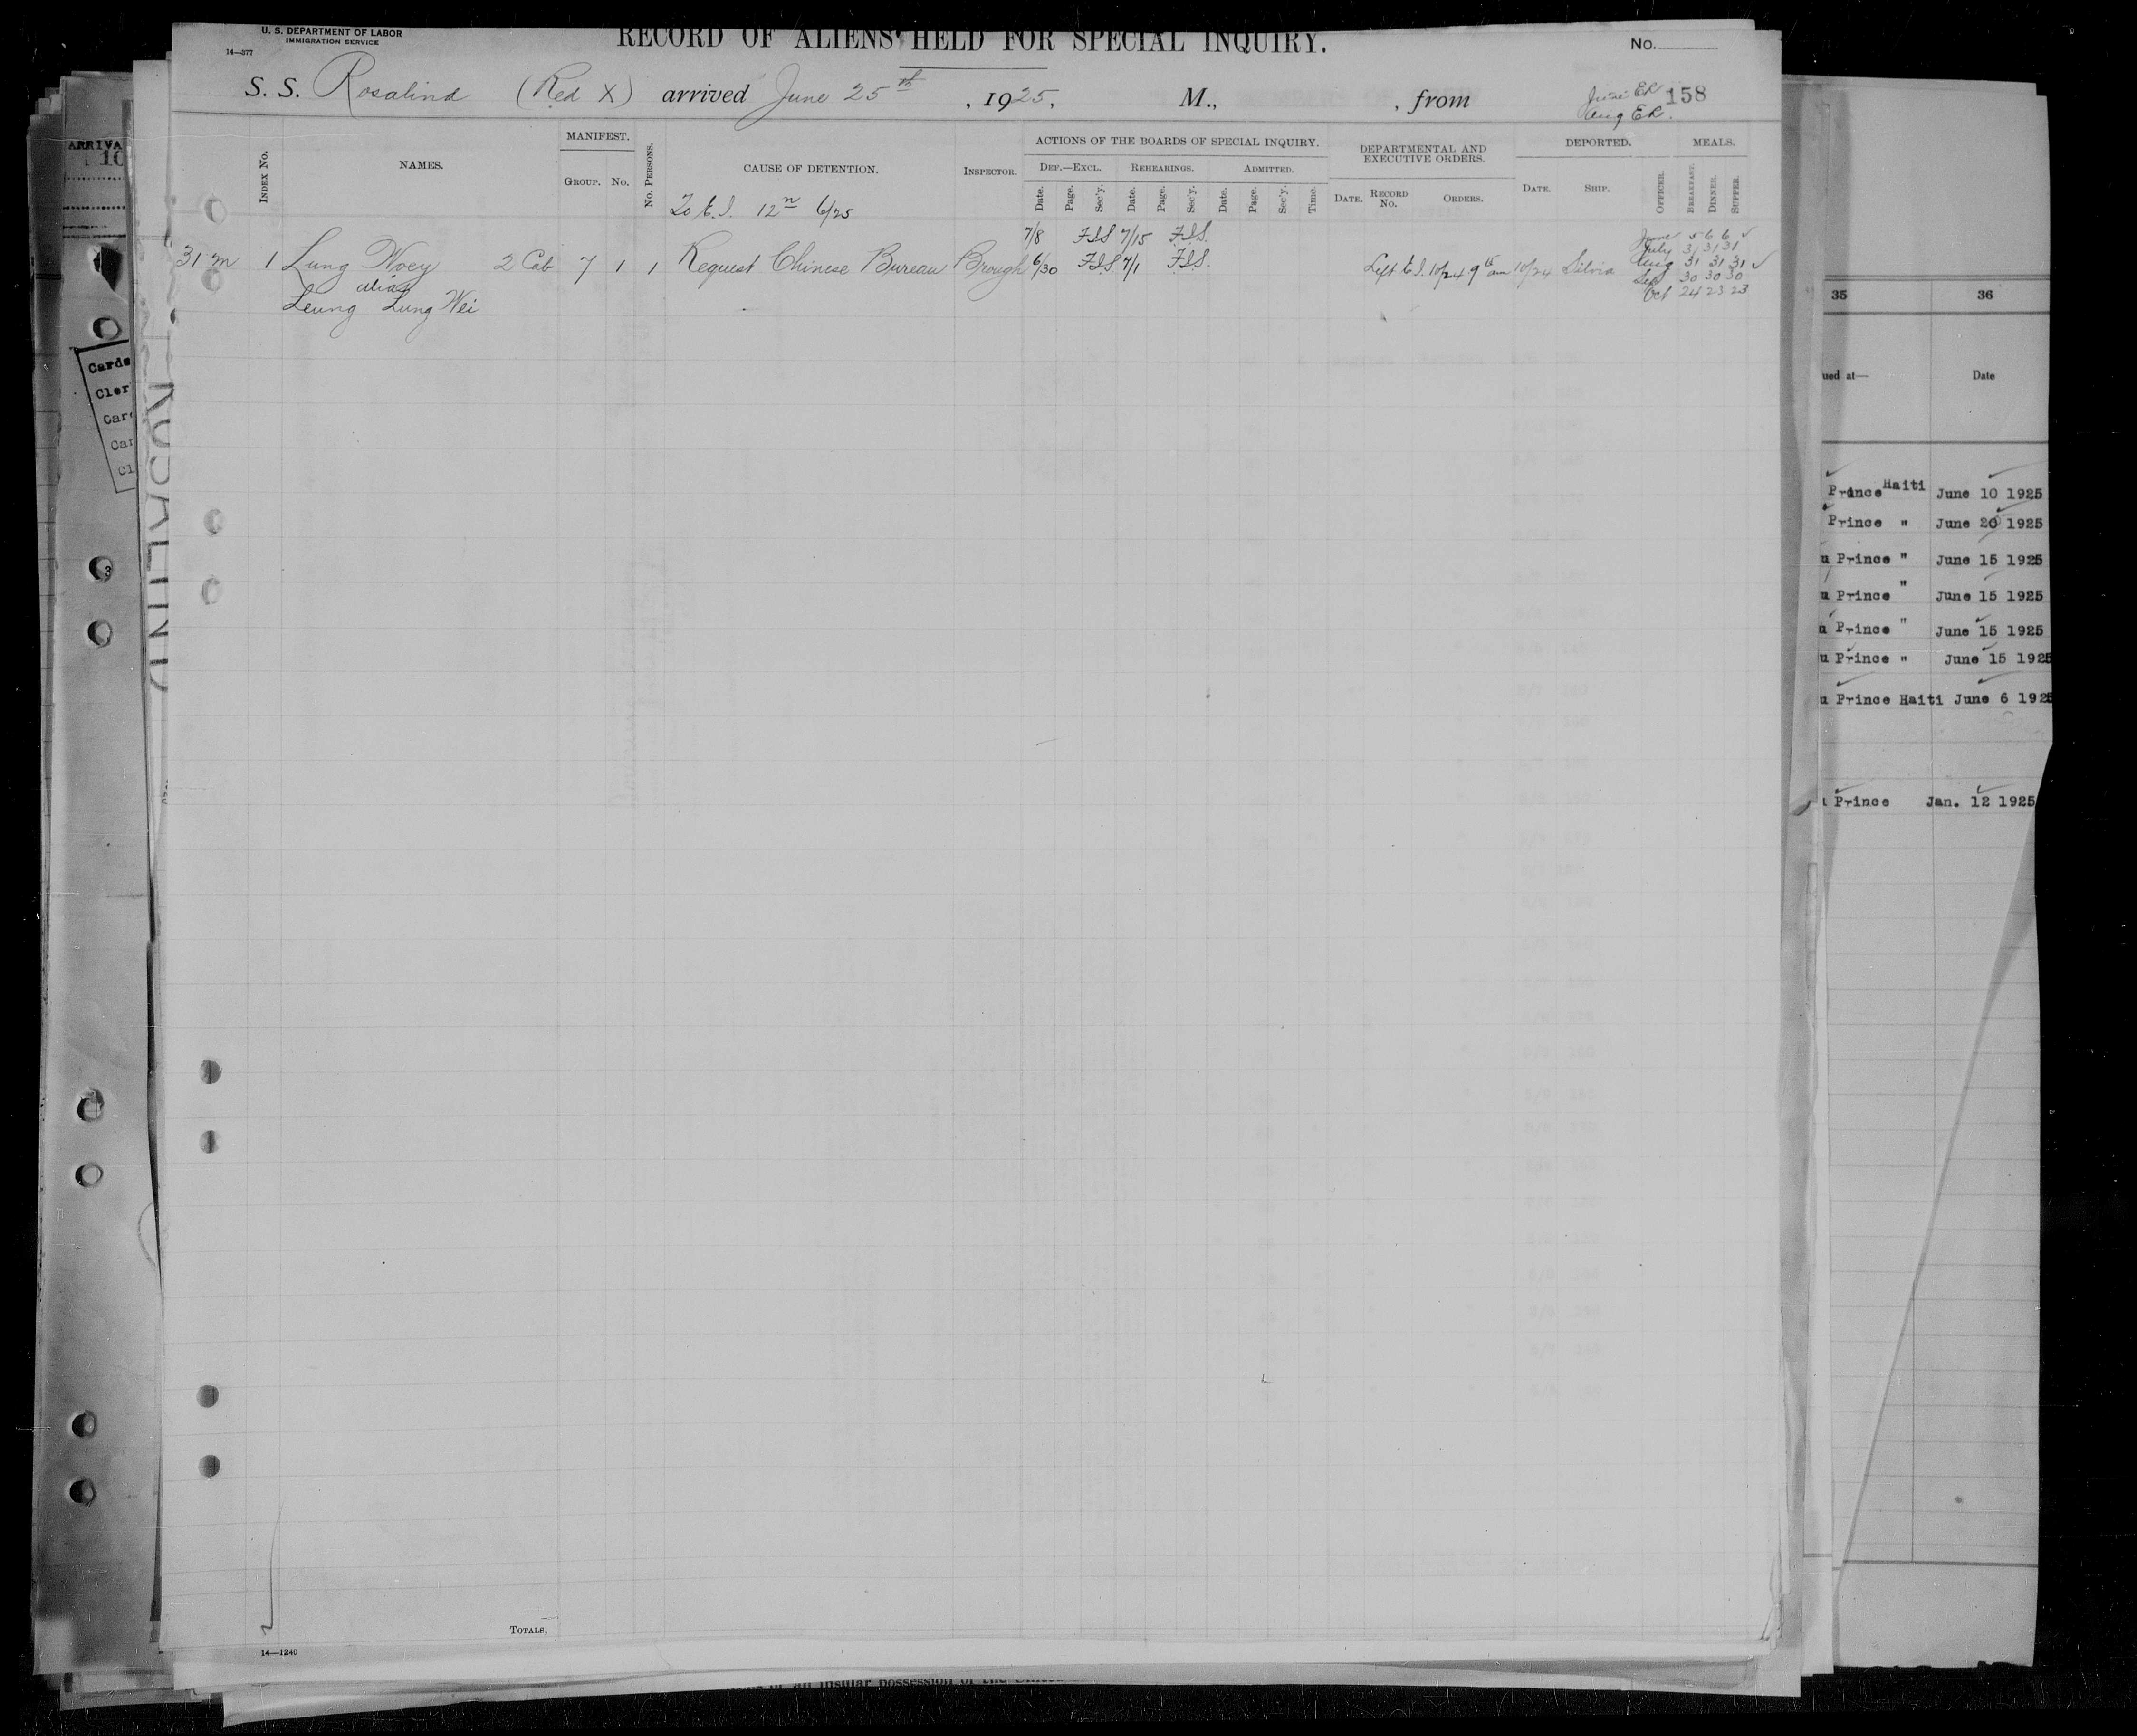 U. S. DEPARTMENT OF LABOR
IMMIGRATION SERVICE
14—377
RECORD OF ALIENS HELD FOR SPECIAL INQUIRY.
No.
S. S. Rosalind (Red X) arrived June 25th, 1925, M., , from
June ER 158
Aug ER.
INDEX No.
NAMES.
MANIFEST.
GROUP. No.
No. PERSONS.
CAUSE OF DETENTION.
INSPECTOR.
ACTIONS OF THE BOARDS OF SPECIAL INQUIRY.
DEF.—EXCL. REHEARINGS. ADMITTED.
Date. Page. Sec'y. Date. Page. Sec'y. Date. Page. Sec'y. Time.
DEPARTMENTAL AND
EXECUTIVE ORDERS.
DATE. RECORD No. ORDERS.
DEPORTED.
DATE. SHIP. OFFICER.
MEALS.
BREAKFAST. DINNER. SUPPER.
To E.I. 12n 6/25
7/8 FSS 7/15 FSS. June 5 6 6 ✓
July 31 31 31
31 m 1 Lung Woey 2 Cab 7 1 1 Request Chinese Bureau Brough 6/30 FSS 7/1 FSS. Left E.I. 10/24 9th am 10/24 Silvia Aug 31 31 31 ✓
alias Sep 30 30 30
Leung Lung Wei Oct 24 23 23
TOTALS,
14—1240
ARRIVA
10
Cards
Cler
Car
Car
Cl
3
35 36
ued at— Date
Prince Haiti June 10 1925
Prince " June 20 1925
u Prince " June 15 1925
u Prince " June 15 1925
u Prince " June 15 1925
u Prince " June 15 1925
u Prince Haiti June 6 1925
Prince Jan. 12 1925
of an insular possession of the